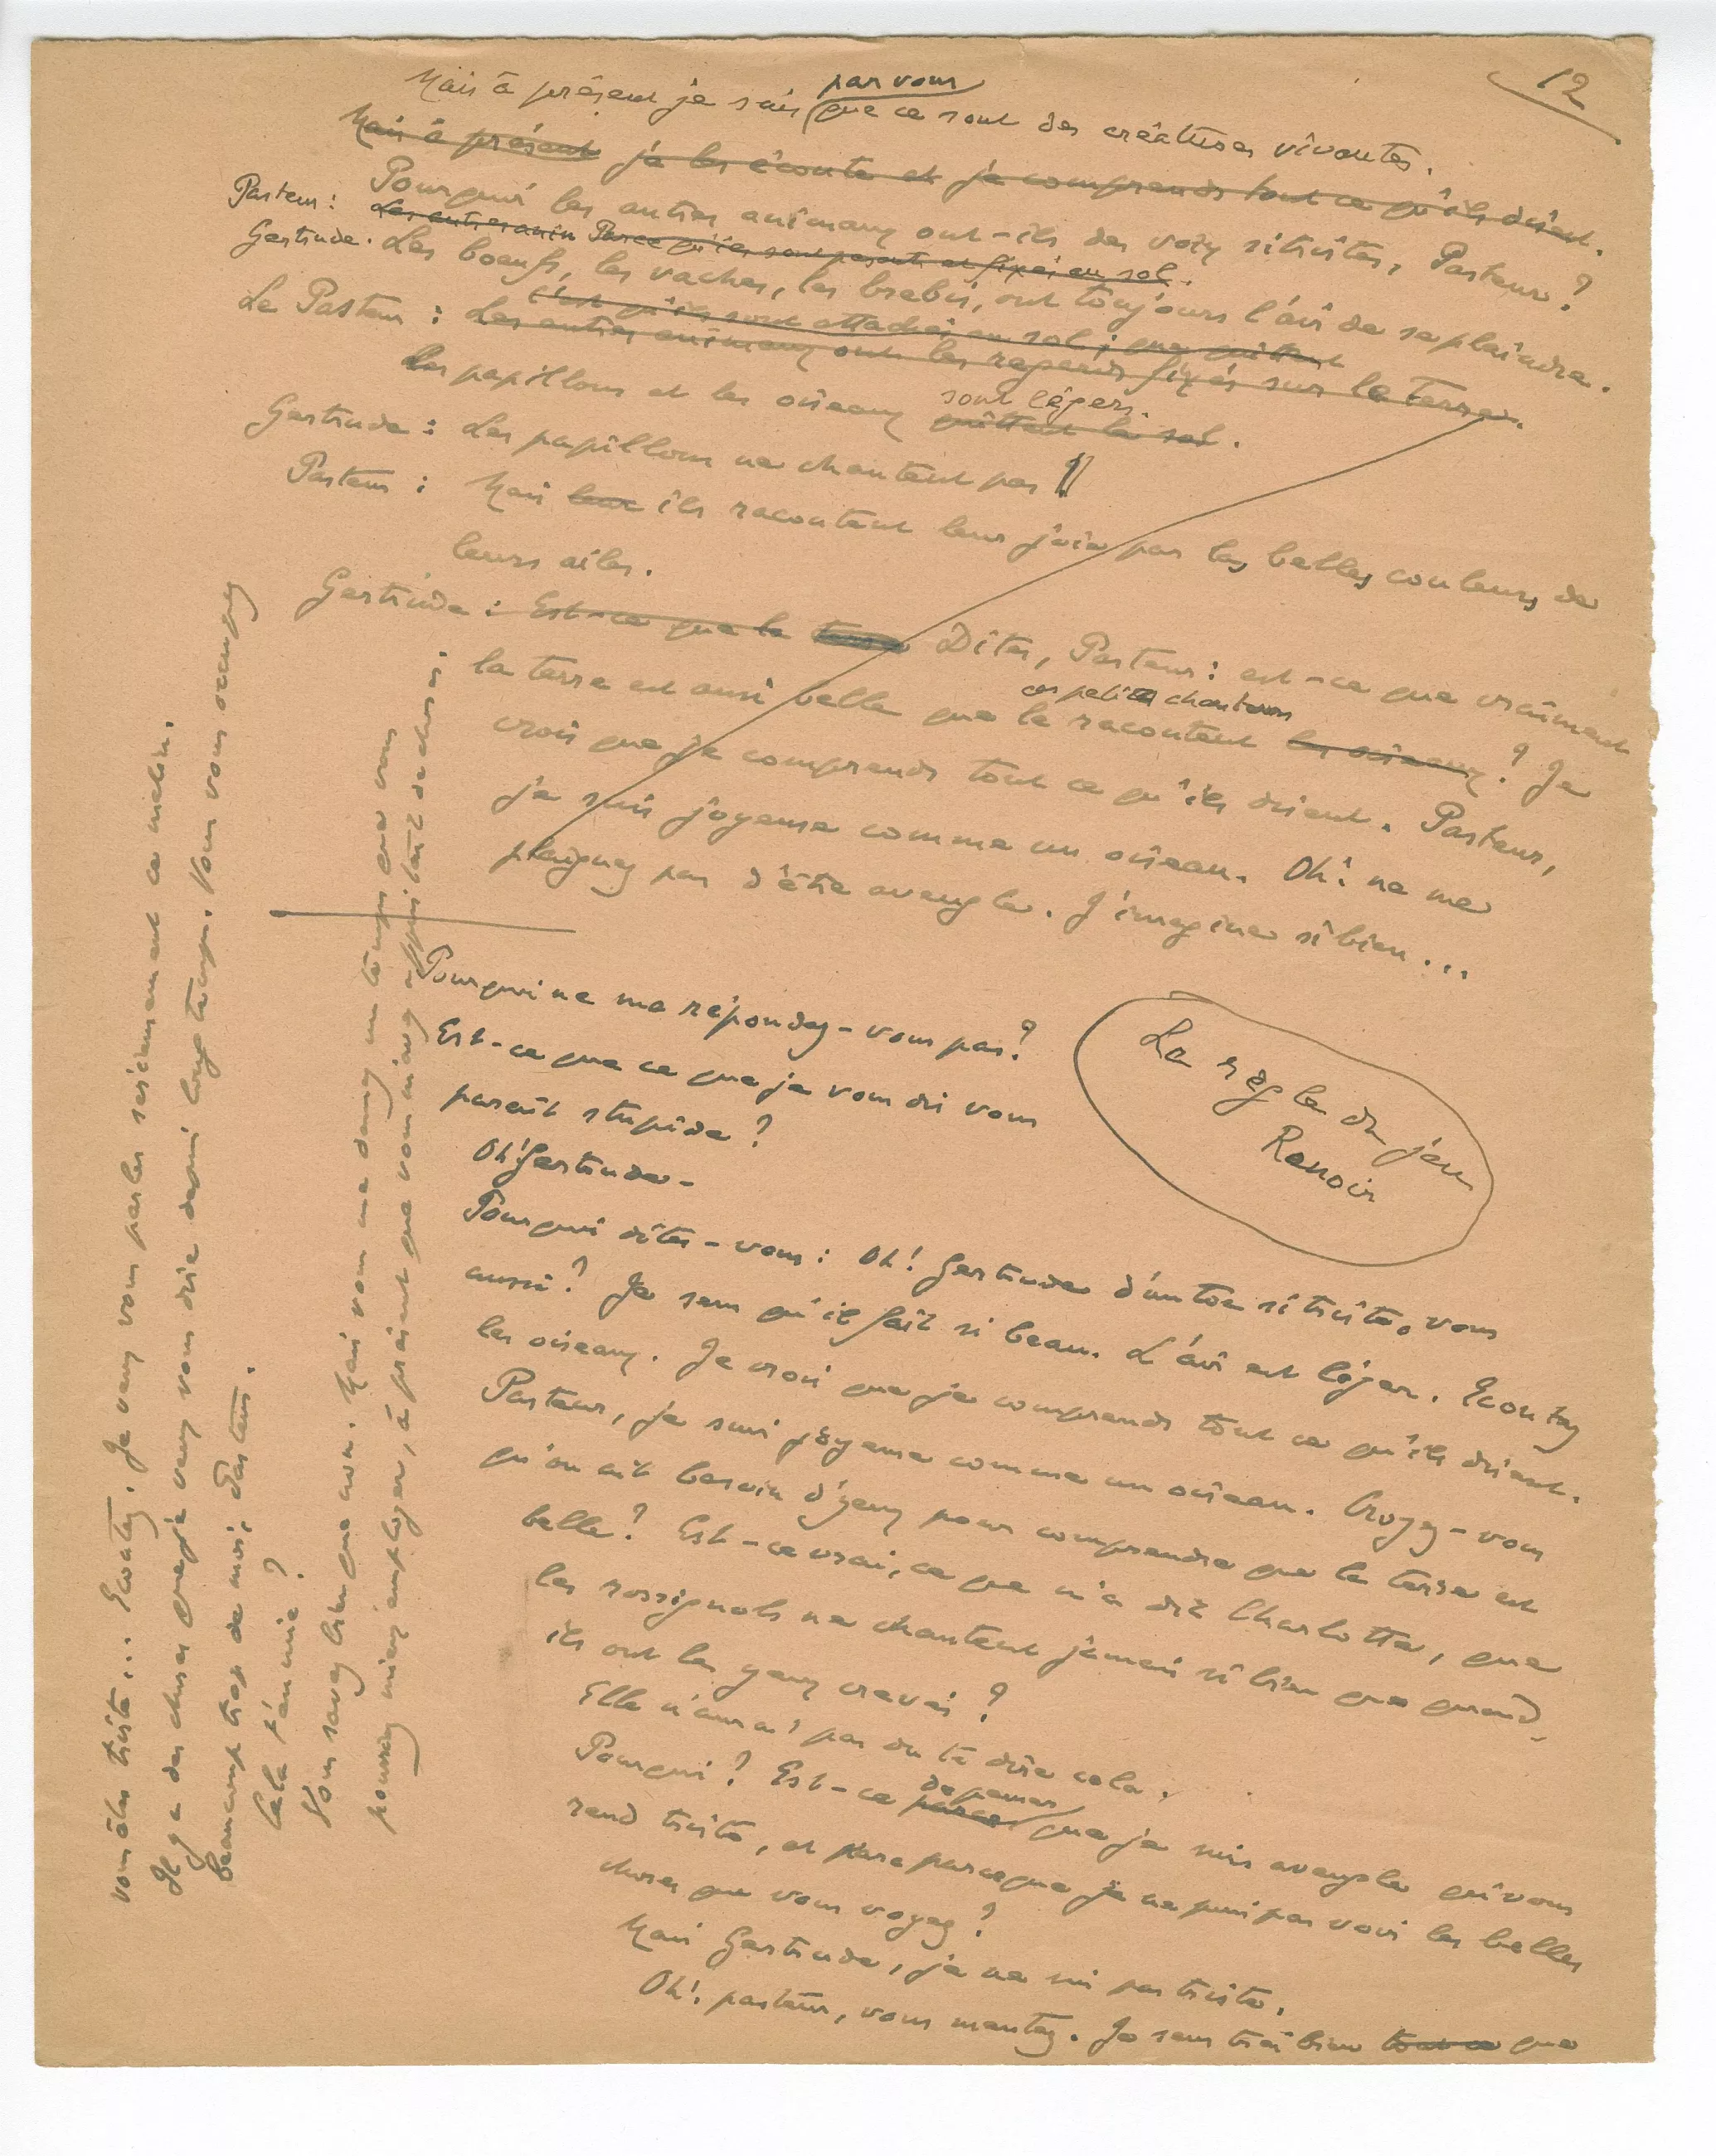 12
par vous
Mais à présent je sais que ce sont des créatures vivantes.
Mais à présent je les écoute et je comprends tout ce qu'ils disent.
Pourquoi les autres animaux ont-ils des voix si tristes, Pasteur ?
Pasteur : Les autres anim Parce qu'ils sont pesants et fixés au sol.
Gertrude. Les boeufs, les vaches, les brebis, ont toujours l'air de se plaindre.
c'est qu'ils sont attachés au sol ; que quittent
Le Pasteur : Les autres animaux ont les regards fixés sur la terre.
sont légers.
Les papillons et les oiseaux quittent le sol.
Gertrude : Les papillons ne chantent pas !
Pasteur : Mais leur ils racontent leur joie par les belles couleurs de
leurs ailes.
Gertrude : Est-ce que la terre Dites, Pasteur : est-ce que vraiment
ces petits chanteurs
la terre est aussi belle que le racontent les oiseaux ? Je
crois que je comprends tout ce qu'ils disent. Pasteur,
je suis joyeuse comme un oiseau. Oh ! ne me
plaignez pas d'être aveugle. J'imagine si bien...
Pourquoi ne me répondez-vous pas ?
Est-ce que ce que je vous dis vous
paraît stupide ?
Oh ! Gertrude -
La règle du jeu
Renoir
Pourquoi dites-vous : Oh ! Gertrude d'un ton si triste, vous
aussi ? Je sens qu'il fait si beau. L'air est léger. Ecoutez
les oiseaux. Je crois que je comprends tout ce qu'ils disent.
Pasteur, je suis joyeuse comme un oiseau. Croyez-vous
qu'on ait besoin d'yeux pour comprendre que la terre est
belle ? Est-ce vrai, ce que m'a dit Charlotte, que
les rossignols ne chantent jamais si bien que quand
ils ont les yeux crevés ?
Elle n'aurait pas du te dire cela.
Pourquoi ? Est-ce parce de penser que je suis aveugle qui vous
rend triste, et parce que je ne puis pas voir les belles
choses que vous voyez ?
Mais Gertrude, je ne suis pas triste.
Oh ! pasteur, vous mentez. Je sens très bien tout ce que
vous êtes triste... Ecoutez. Je veux vous parler sérieusement ce matin.
Il y a des choses que je veux vous dire depuis longtemps. Vous vous occupez
beaucoup trop de moi, Pasteur.
Cela t'ennuie ?
Vous savez bien que non. Mais vous me donnez un temps que vous
pourriez mieux employer, à présent que vous m'avez appris tant de choses.